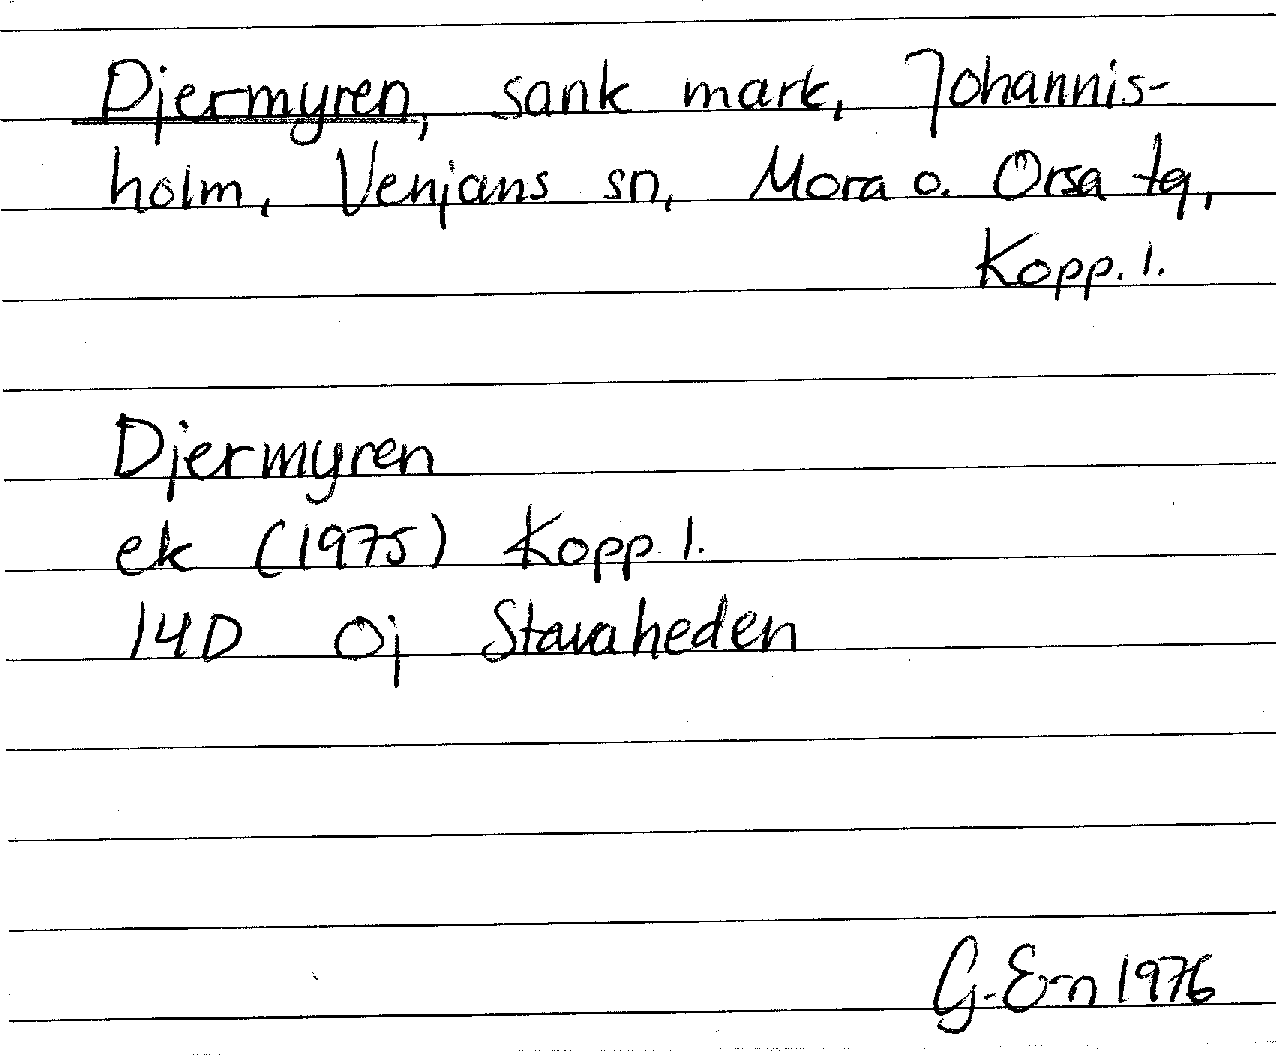 Djermyren, sank mark, Johannis-
holm, Venjans sn, Mora o. Orsa tg,
Kopp. l.
Djermyren
ek (1975) Kopp. l.
14D 0j Stavaheden
G. E-n 1976